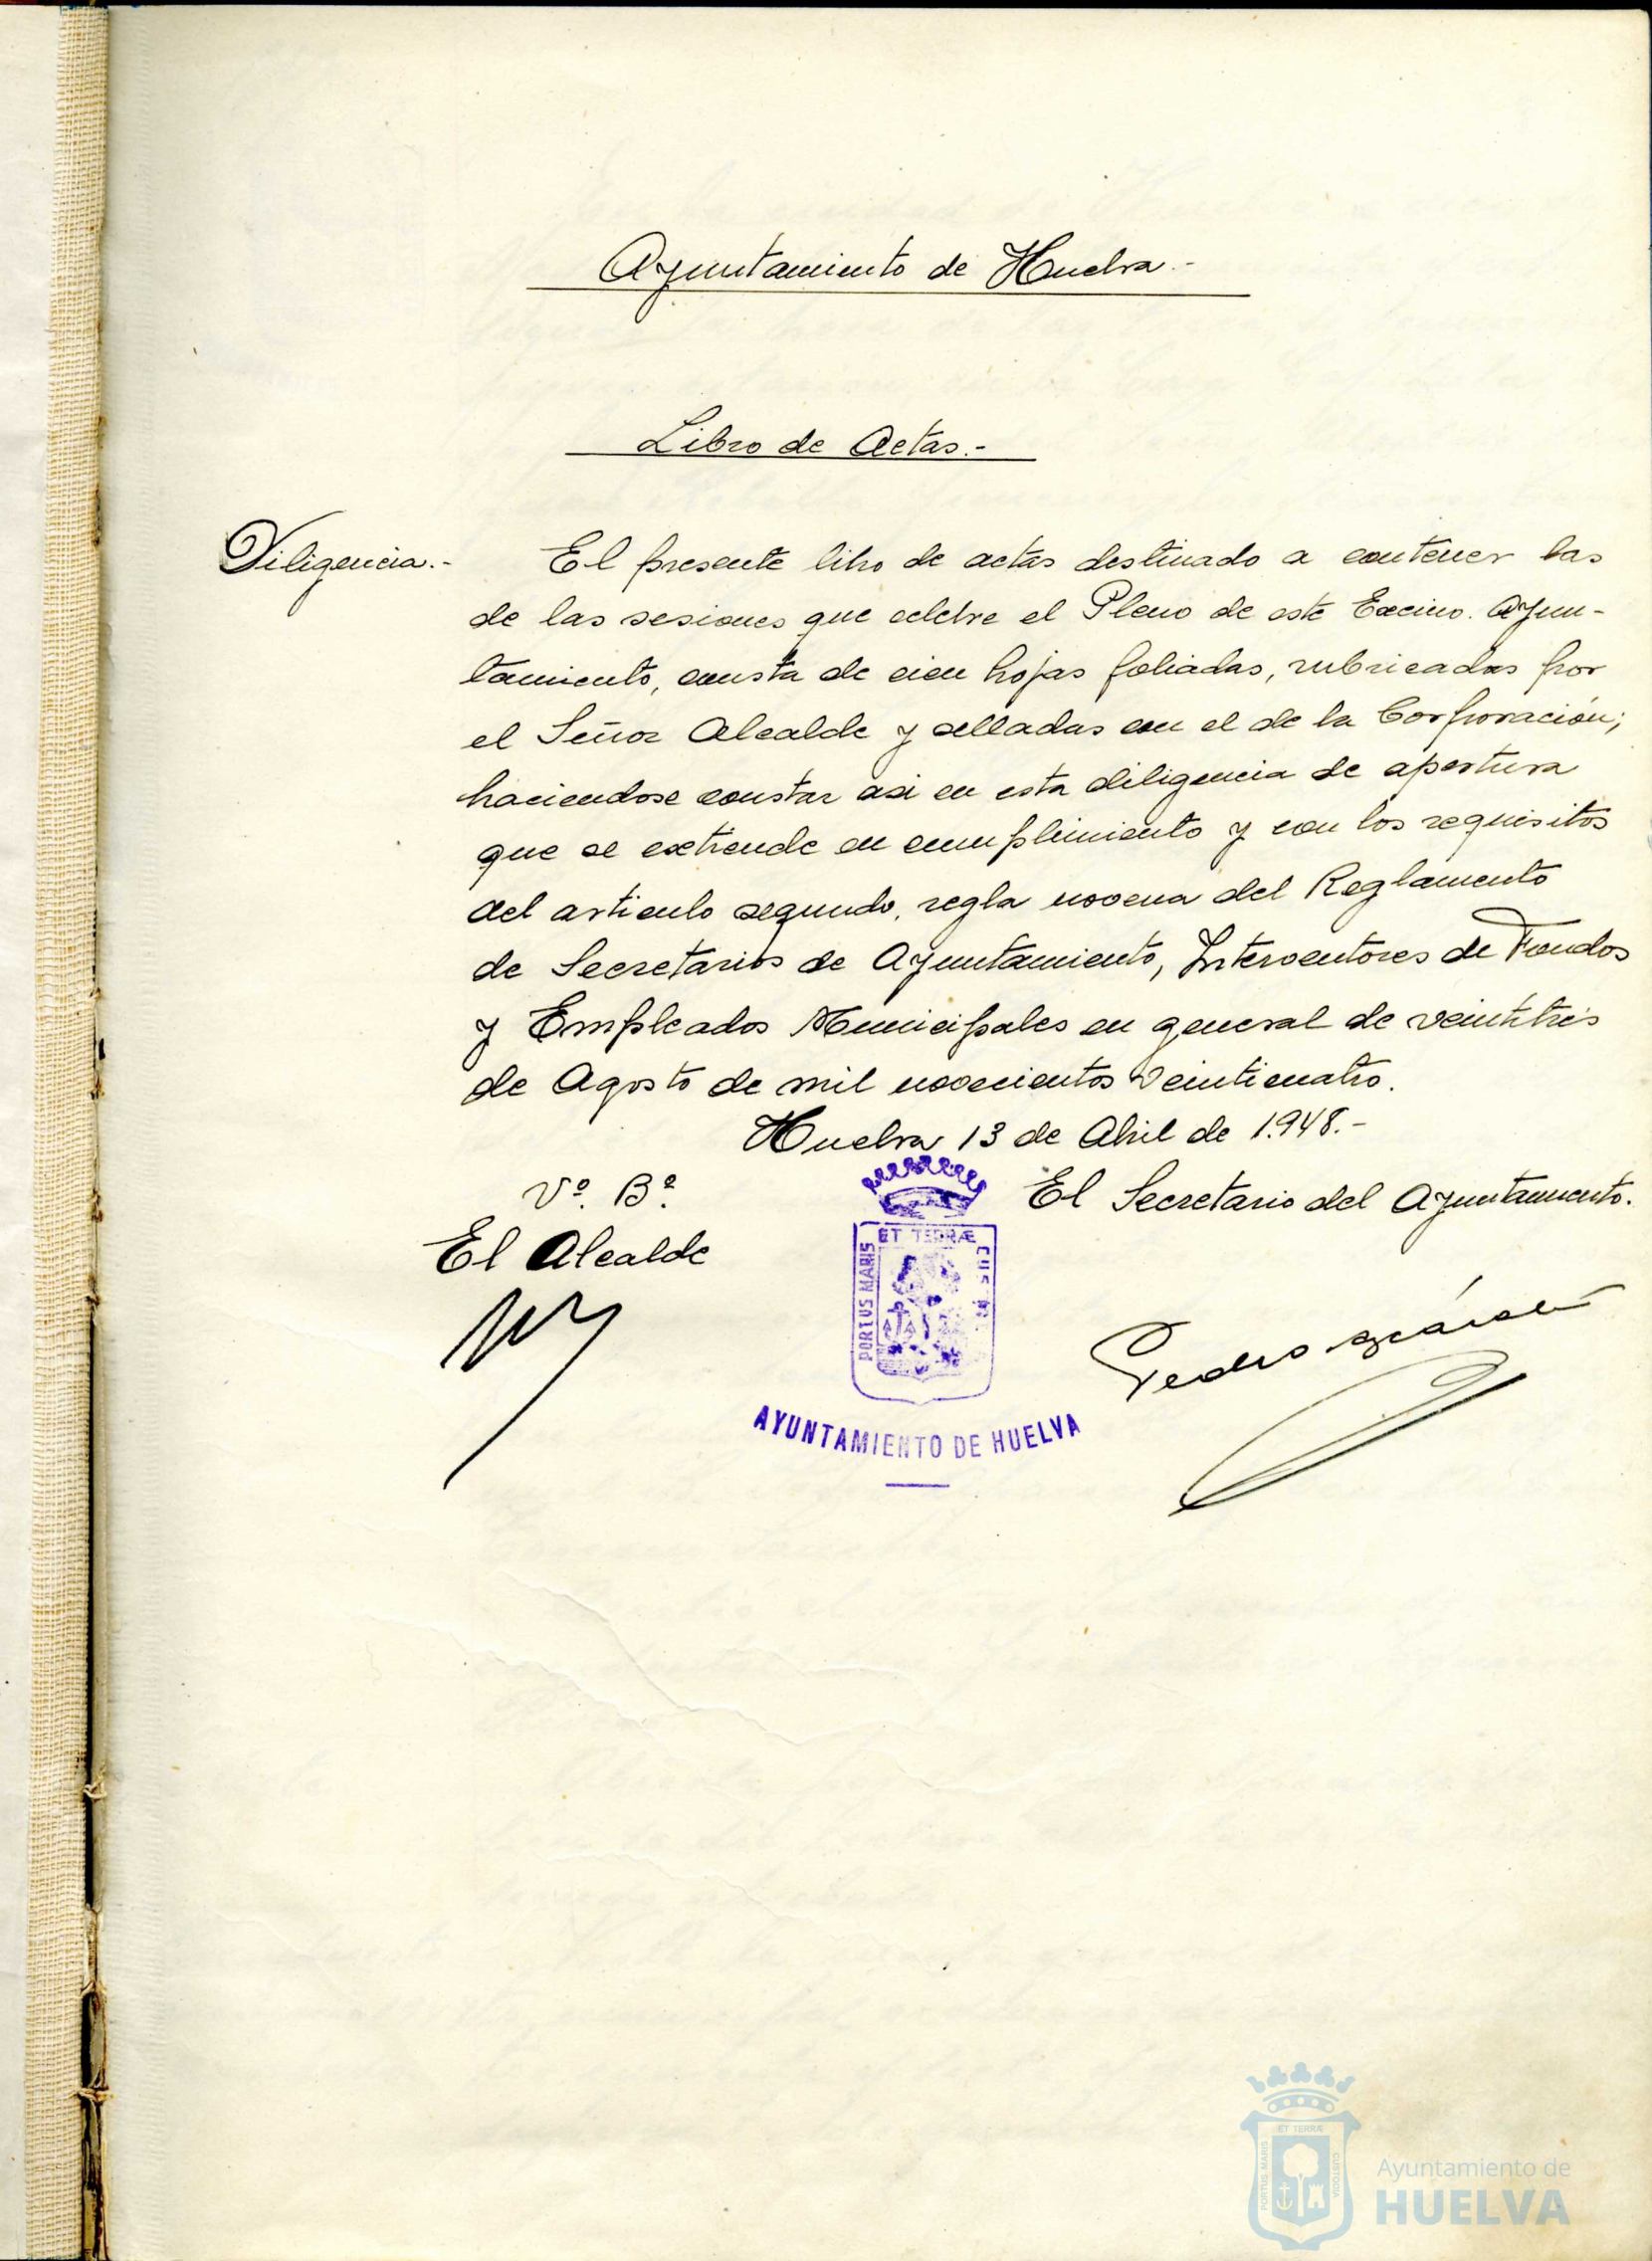 Ayuntamiento de Huelva.-
Libro de Actas.-
Diligencia.-
El presente libro de actas destinado a contener las
de las sesiones que celebre el Pleno de este Excmo. Ayun-
tamiento, consta de cien hojas foliadas, rubricadas por
el Señor Alcalde y selladas con el de la Corporación;
haciendose constar asi en esta diligencia de apertura
que se extiende en cumplimiento y con los requisitos
del articulo segundo, regla novena del Reglamento
de Secretarios de Ayuntamiento, Interventores de Fondos
y Empleados Municipales en general de veintitres
de Agosto de mil novecientos veinticuatro.
Huelva 13 de Abril de 1.948.-
Vº. Bº.
El Alcalde
El Secretario del Ayuntamiento.
PORTUS MARIS
ET TERRÆ
AYUNTAMIENTO DE HUELVA
Pedro
PORTUS MARIS
ET TERRÆ
CUSTODIA
Ayuntamiento de
HUELVA